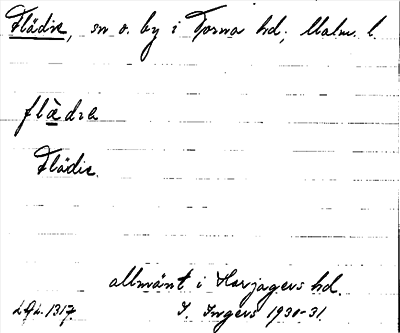 Flädie, sn o. by i Torna hd, Malm. l.
flàdia
Flädie.
allmänt i Harjagers hd.
I. Ingers 1930-31.
LAL. 1317.